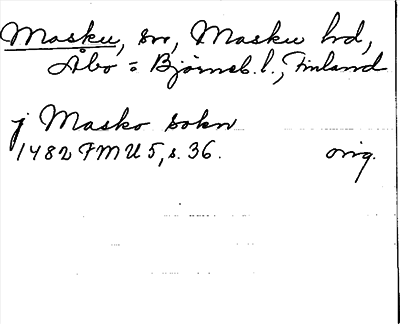 Masku, sn, Masku hd,
Åbo = Bjørneb. l., Finland
j Masko sokn
1482 FMU 5, s. 36. orig.